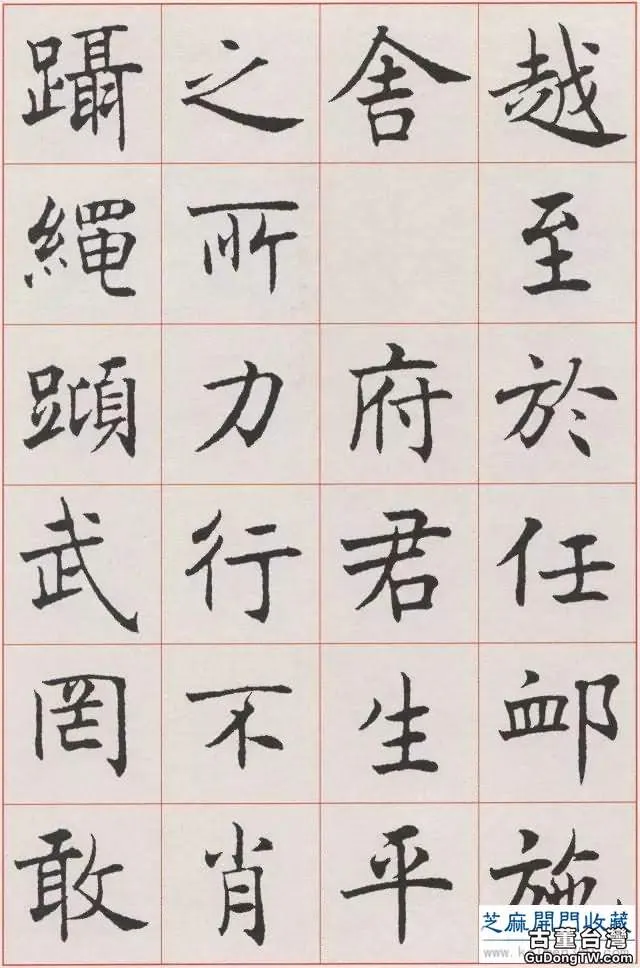 越至於任卹施
舍 府君生平
之所力行不肖
躡繩蹞武罔敢
芝麻開門收藏
古董台灣
GuDongTW.com